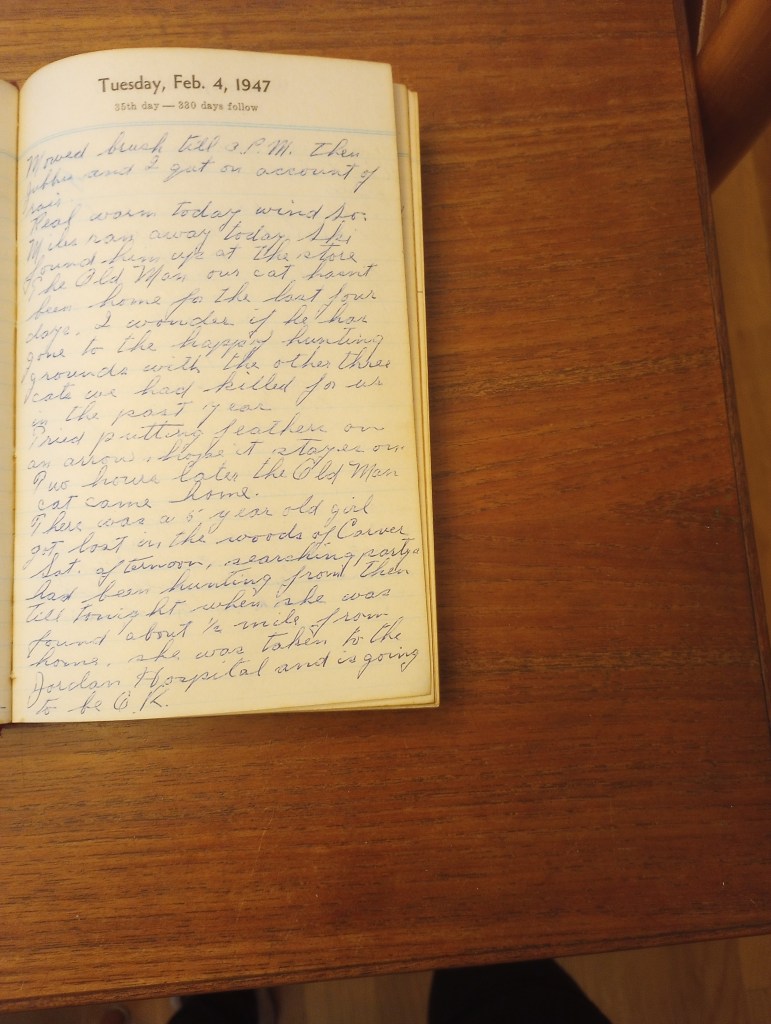 Tuesday, Feb. 4, 1947
35th day — 330 days follow
Mowed brush till P.M. then
and I quit on account of
rain.
Real warm today wind So.
Miles ran away today, Ski
found him up at the store
The Old Man our cat hasnt
been home for the last four
days. I wonder if he has
gone to the happy hunting
grounds with the other three
cats we had killed for us
in the past year
Tried putting feathers on
an arrow. Hope it stayes on.
Two hours later the Old Man
cat came home.
There was a 5 year old girl
got lost in the woods of Carver
Sat. afternoon, searching partys
had been hunting from then
till tonight when she was
found about ½ mile from
home. she was taken to the
Jordan Hospital and is going
to be O.K.